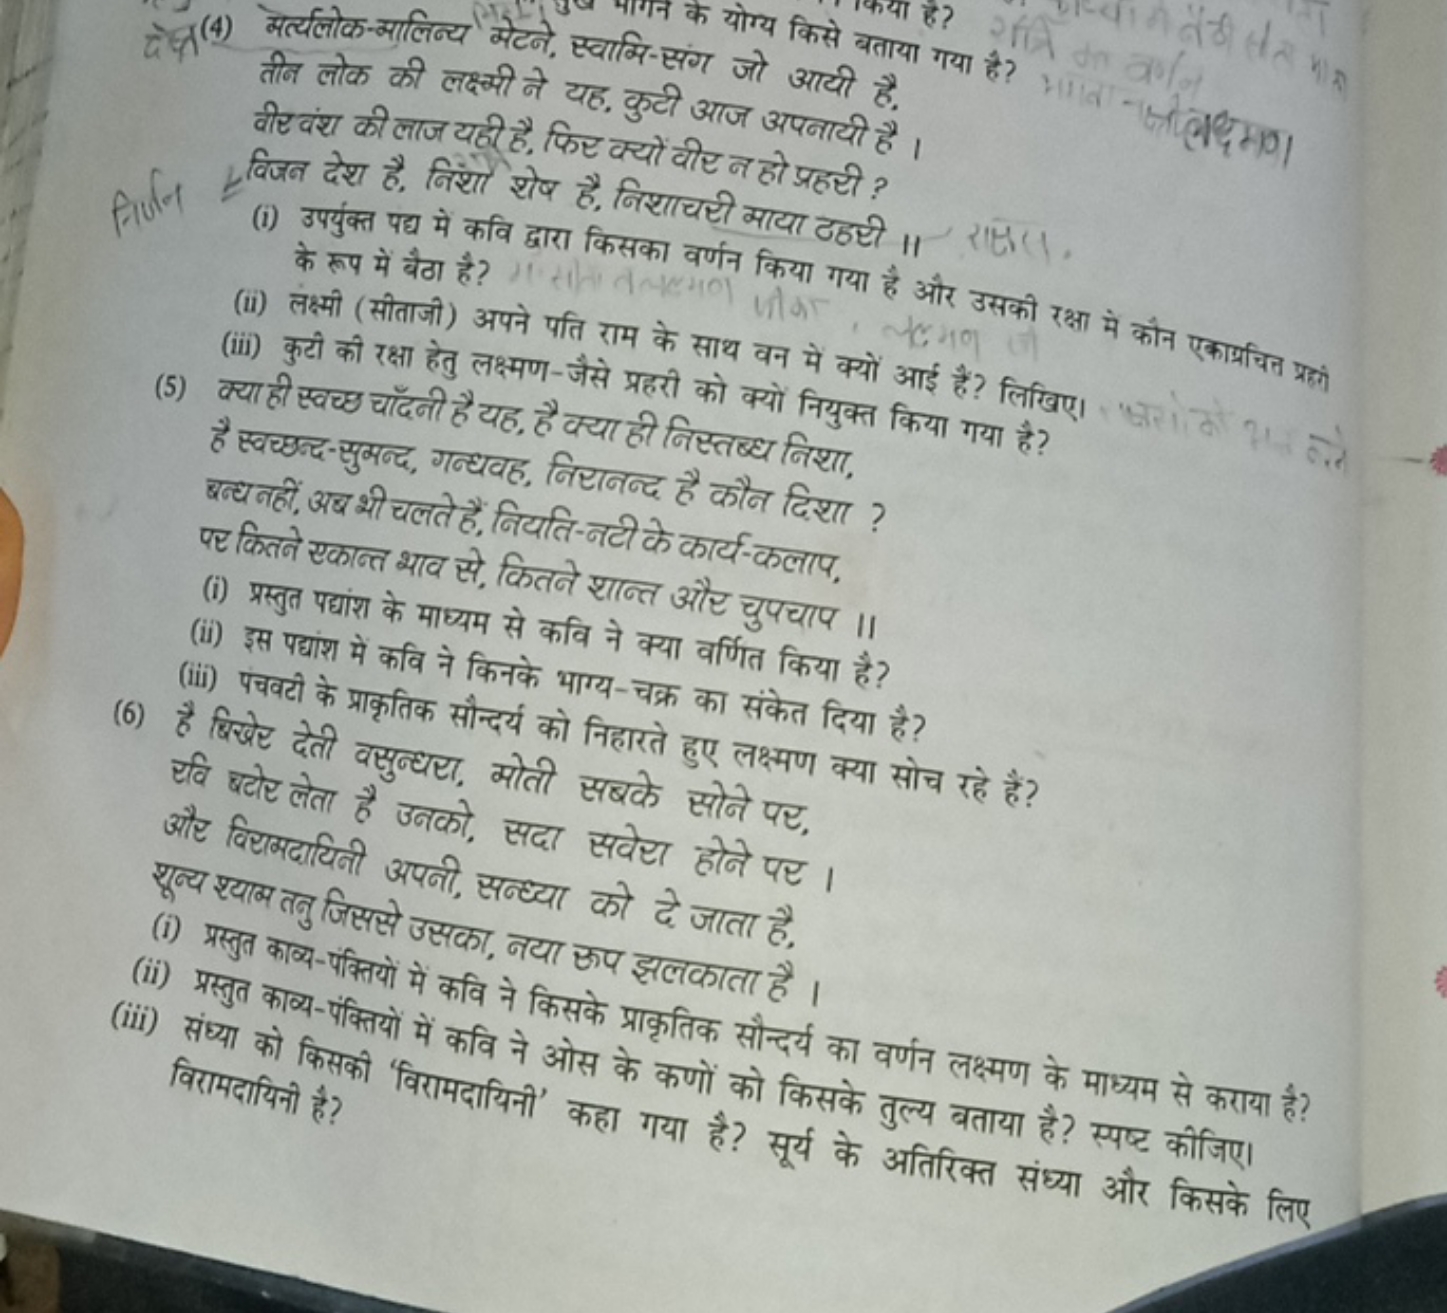 भोगने के योग्य किसे बताया गया है?
(4) मर्त्यलोक-मालिन्य मेटने, स्वामि-संग जो आयी है,
तीन लोक की लक्ष्मी ने यह, कुटी आज अपनायी है।
वीर वंश की लाज यही है, फिर क्यों वीर न हो प्रहरी?
विजन देश है, निशा शेष है, निशाचरी माया ठहरी ॥
निर्जन
(i) उपर्युक्त पद्य में कवि द्वारा किसका वर्णन किया गया है और उसकी रक्षा में कौन एकाग्रचित्त प्रहरी
के रूप में बैठा है?
(ii) लक्ष्मी (सीताजी) अपने पति राम के साथ वन में क्यों आई हैं? लिखिए।
(iii) कुटी की रक्षा हेतु लक्ष्मण-जैसे प्रहरी को क्यों नियुक्त किया गया है?
(5) क्या ही स्वच्छ चाँदनी है यह, है क्या ही निस्तब्ध निशा,
है स्वच्छन्द-सुमन्द, गन्धवह, निरानन्द है कौन दिशा ?
बन्ध नहीं, अब भी चलते हैं, नियति-नटी के कार्य-कलाप,
पर कितने एकान्त भाव से, कितने शान्त और चुपचाप ॥
(i) प्रस्तुत पद्यांश के माध्यम से कवि ने क्या वर्णित किया है?
(ii) इस पद्यांश में कवि ने किनके भाग्य-चक्र का संकेत दिया है?
(iii) पंचवटी के प्राकृतिक सौन्दर्य को निहारते हुए लक्ष्मण क्या सोच रहे हैं?
(6) है बिखेर देती वसुन्धरा, मोती सबके सोने पर,
रवि बटोर लेता है उनको, सदा सवेरा होने पर ।
और विरामदायिनी अपनी, सन्ध्या को दे जाता है,
शून्य श्याम तनु जिससे उसका, नया रूप झलकाता है ।
(i) प्रस्तुत काव्य-पंक्तियों में कवि ने किसके प्राकृतिक सौन्दर्य का वर्णन लक्ष्मण के माध्यम से कराया है?
(ii) प्रस्तुत काव्य-पंक्तियों में कवि ने ओस के कणों को किसके तुल्य बताया है? स्पष्ट कीजिए।
(iii) संध्या को किसकी ‘विरामदायिनी’ कहा गया है? सूर्य के अतिरिक्त संध्या और किसके लिए
विरामदायिनी है?